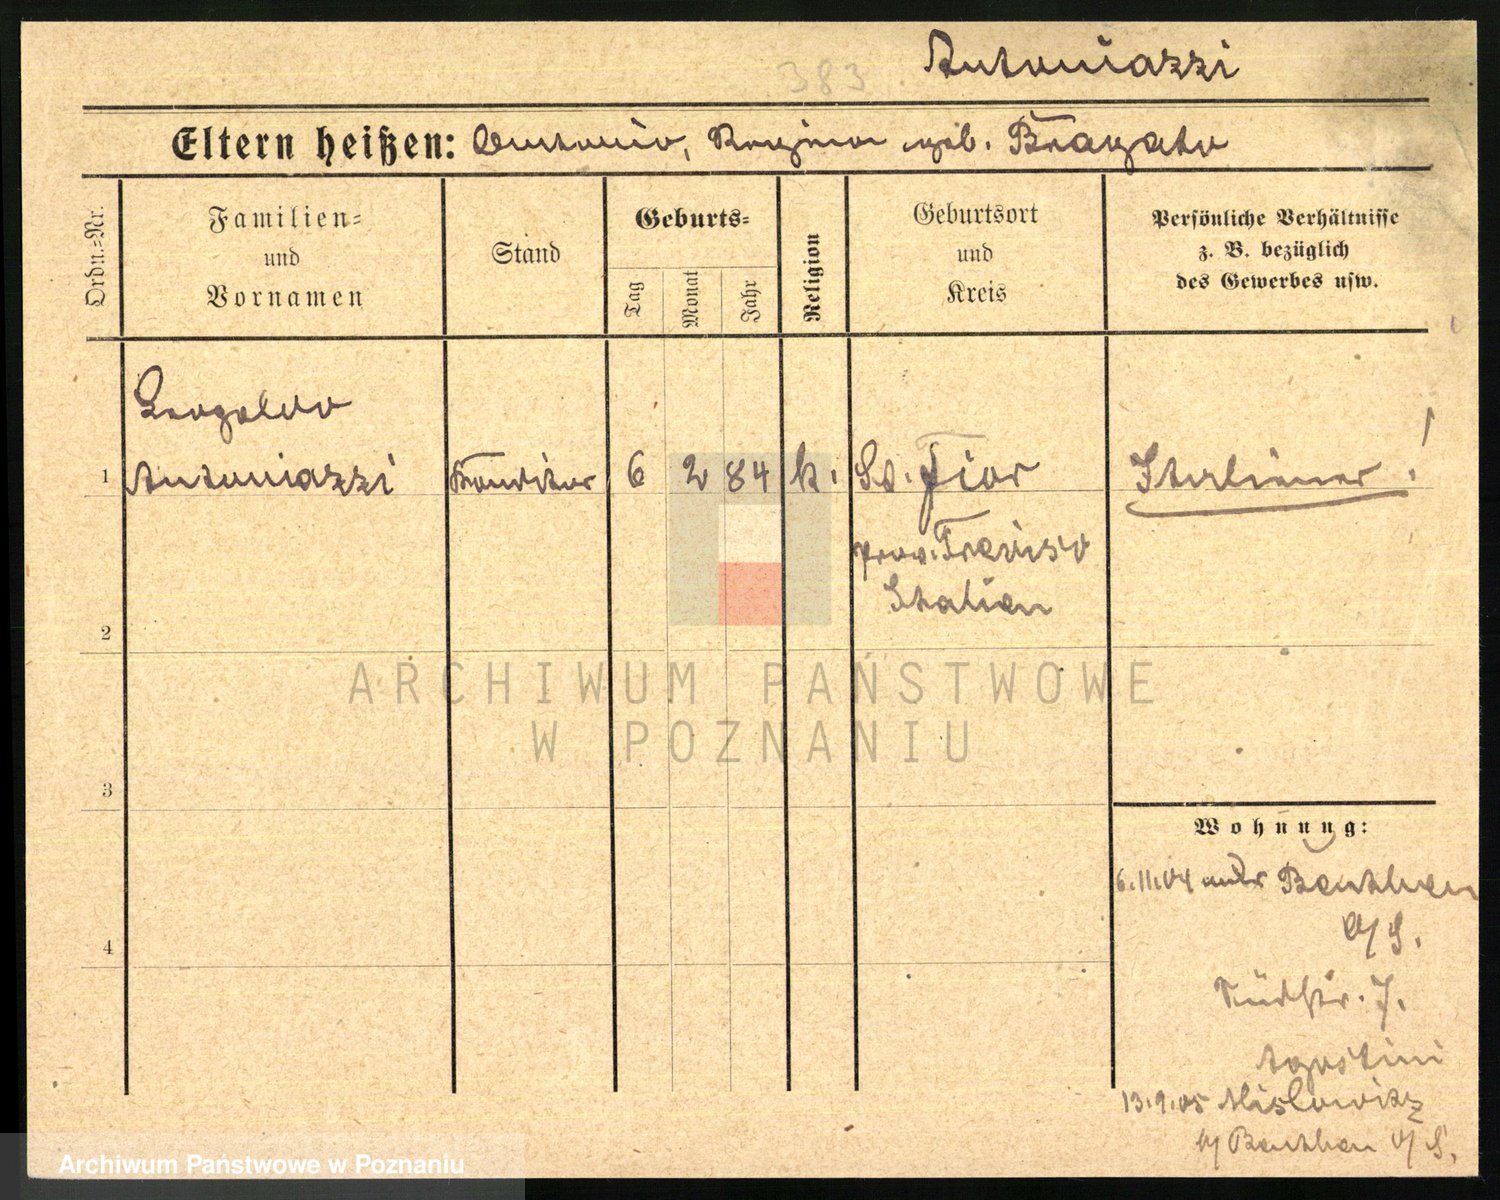 383
Antoniazzi
Eltern heißen: Antonio, Regina geb. Bragato
Ordn.=Nr.
Familien=
und
Vornamen
Stand
Geburts=
Tag
Monat
Jahr
Religion
Geburtsort
und
Kreis
Persönliche Verhältnisse
z. B. bezüglich
des Gewerbes usw.
Leopoldo
1 Antoniazzi Konditor 6 2 84 k. Fior Italiener!
prov. Treviso
Italien
2
ARCHIWUM PAŃSTWOWE
W POZNANIU
3
4
Wohnung:
6.11.04 Beuthen
O/S.
Südstr. 7.
Agostini
13.9.05 Mislowitz
b/ Beuthen O/S.
Archiwum Państwowe w Poznaniu